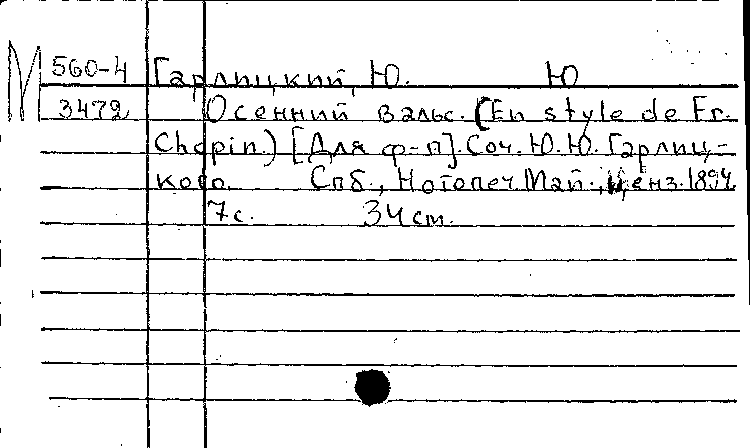 М 560-4 Гарлицкий, Ю. Ю
3472 Осенний вальс. (En style de Fr.
Chopin.) [Для ф-п]. Соч. Ю.Ю. Гарлиц-
кого. Спб., Нотопеч. Май., ценз. 1894.
7с. 34см.